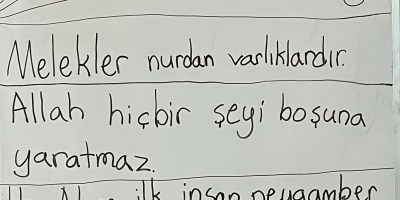 Melekler nurdan varlıklardır.
Allah hiçbir şeyi boşuna
yaratmaz.
ilk insan peygamber